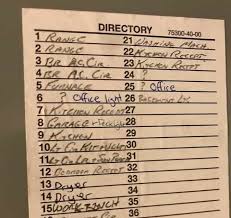 DIRECTORY
75300-40-00
1 RANGE 21 WASHING MACH
2 RANGE 22 KITCHEN RECEPT
3 BR AC Cir 23 KITCHEN RECEPT
4 BR AC Cir 24 ?
5 FURNACE 25 ? Office
6 ? Office light 26 BASEMENT LTS
7 KITCHEN RECEPT 27
8 GARAGE + 28
9 KITCHEN 29
10 LT Cir KIT 30
11 LT Cir LR + 31
12 RECEPT 32
13 Dryer 33
14 Dryer 34
15 WORK BENCH 35
36